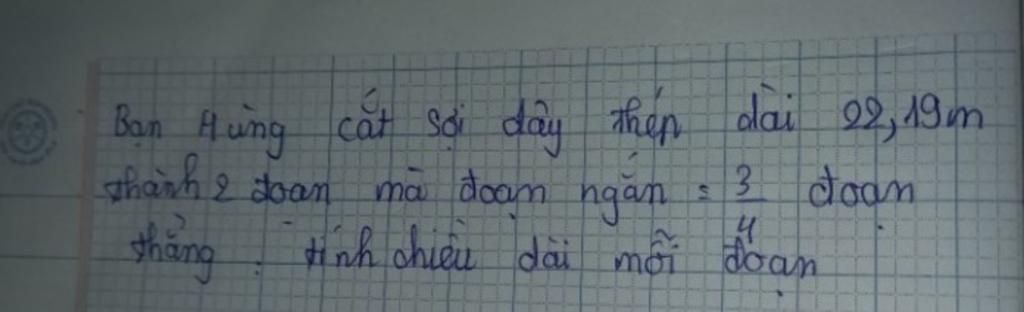 Bạn Hùng cắt sợi dây thép dài 22,19m
thành 2 đoạn mà đoạn ngắn = 3/4 đoạn
thẳng. tính chiều dài mỗi đoạn